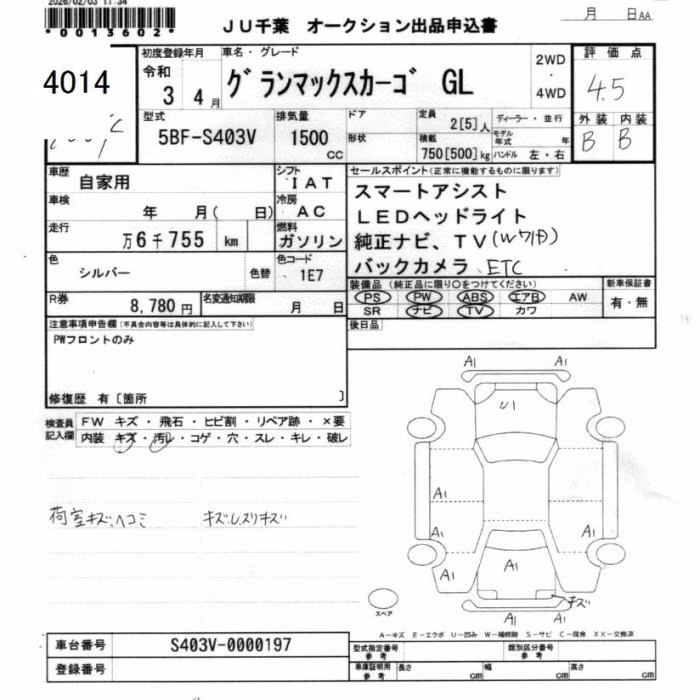 2026/02/03 11:34
*0013602*
JU千葉 オークション出品申込書
月 日AA
4014
初度登録年月
令和
3 4月
車名・グレード
グランマックスカーゴ GL
2WD
・
4WD
評価点
4.5
外装 内装
B B
型式
5BF-S403V
排気量
1500
cc
ドア
形状
定員
2[5]人
積載
750[500]kg
ディーラー・並行
モデル年式 年
ハンドル 左・右
車歴
自家用
シフト
IAT
車検
年 月( 日)
冷房
AC
走行
万6千755 km
燃料
ガソリン
色
シルバー
色替
色コード
1E7
R券
8,780円
名変通知期限
月 日
セールスポイント(正常に機能するものに限ります)
スマートアシスト
LEDヘッドライト
純正ナビ、TV(Wワ付)
バックカメラ ETC
装備品(純正品に限り○をつけてください)
PS PW ABS エアB AW
SR ナビ TV カワ
新車保証書
有・無
後日品
注意事項申告欄(不具合内容等は具体的に記入して下さい)
PWフロントのみ
修復歴 有〔箇所 〕
検査員記入欄
FW キズ・飛石・ヒビ割・リペア跡・×要
内装 キズ・汚レ・コゲ・穴・スレ・キレ・破レ
荷室キズ、ヘコミ キズ、スリキズ
A1 A1
U1
A1
A1 A1
A1 A1 A1
キズ
A1 A1
スペア
A-キズ E-エクボ U-凹み W-補修跡 S-サビ C-腐食 XX-交換済
車台番号
S403V-0000197
登録番号
型式指定番号
参考
類別区分番号
参考
車庫証明用
参考
長さ cm
幅 cm
高さ cm